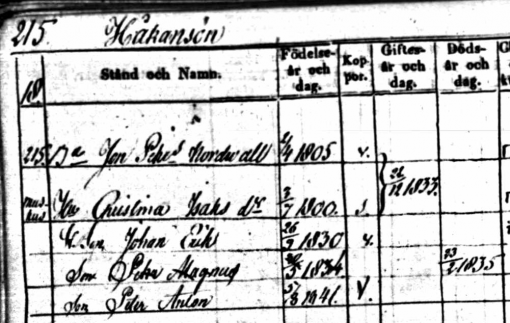 215. Håkansön
Stånd och Namn. Födelse-år och dag. Kop-por. Giftes-år och dag. Döds-år och dag.
18
215 Jon Nordwall 1805 v.
26/12 1833.
Hu Christina Isaks dr 3/7 1800. s.
Son Johan Erik 26/9 1830 v.
Son Petter Magnus 1834 1835
Son Peter Anton 1841. V.